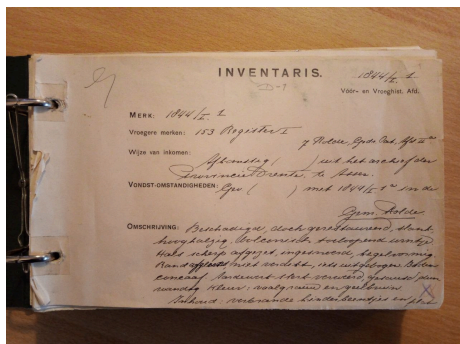 INVENTARIS.
1844/I 1
Vóór- en Vroeghist. Afd.
MERK: 1844/I 1
Vroegere merken: 153 Register I
Rolde,
Wijze van inkomen:
Afkomstig ( ) uit het archief der
Provincie Drente, te Assen.
VONDST-OMSTANDIGHEDEN: ( ) met 1844/I 1a in de
Gem. Rolde.
OMSCHRIJVING: Beschadigd, doch gerestaureerd, slank
hooghalzig, biconisch toeloopend urntje
Hals scherp afgezet, ingesnoerd, kegelvormig
Rand niet verdikt, iets uitgebogen. Bodem
concaaf. Aardewerk: sterk verweerd, dun-
wandig. Kleur: vaalgrauw en geelbruin.
Inhoud: verbrande kinderbeentjes en